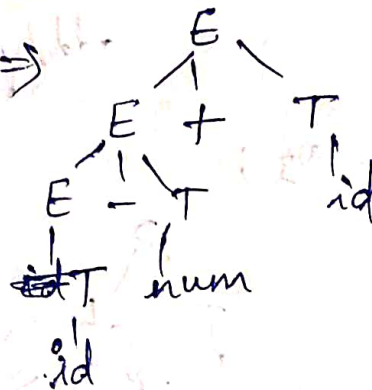 ⇒ E
E + T
E - T id
T num
id